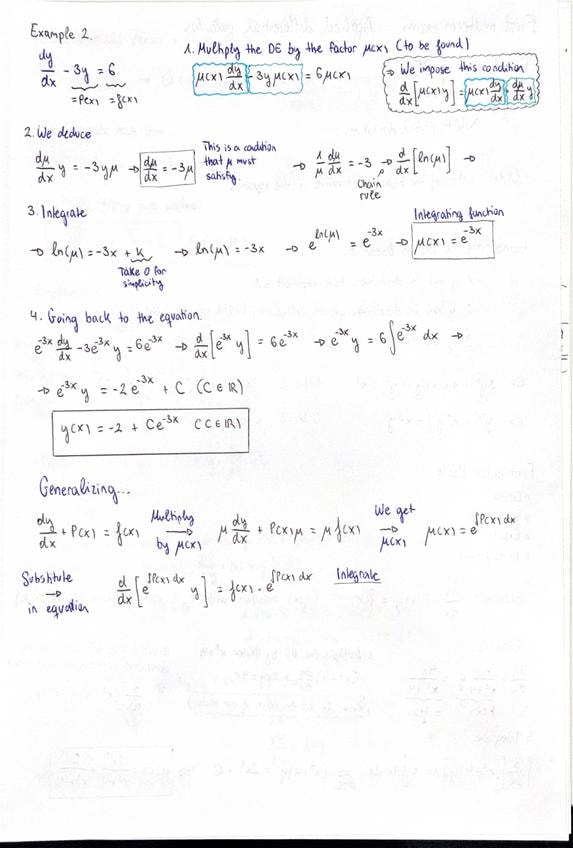 Example 2.
dy/dx - 3y = 6
= P(x) = f(x)
1. Multiply the DE by the factor μ(x) (to be found)
μ(x) dy/dx - 3y μ(x) = 6μ(x)
⇒ We impose this condition
d/dx [μ(x) y] = μ(x) dy/dx + dμ/dx y
2. We deduce
dμ/dx y = -3yμ → dμ/dx = -3μ
This is a condition
that μ must
satisfy.
→ 1/μ dμ/dx = -3 → d/dx [ln(μ)] →
Chain
rule
3. Integrate
→ ln(μ) = -3x + K → ln(μ) = -3x → e^ln(μ) = e^-3x → μ(x) = e^-3x
Take 0 for
simplicity
Integrating function
4. Going back to the equation
e^-3x dy/dx - 3e^-3x y = 6e^-3x → d/dx [e^-3x y] = 6e^-3x → e^-3x y = 6 ∫ e^-3x dx →
→ e^-3x y = -2e^-3x + C (C ∈ ℝ)
y(x) = -2 + Ce^-3x (C ∈ ℝ)
Generalizing...
dy/dx + P(x) = f(x) Multiply → by μ(x) μ dy/dx + P(x) μ = μ f(x) We get → μ(x) μ(x) = e^∫P(x) dx
Substitute → in equation d/dx [e^∫P(x) dx y] = f(x) · e^∫P(x) dx Integrate